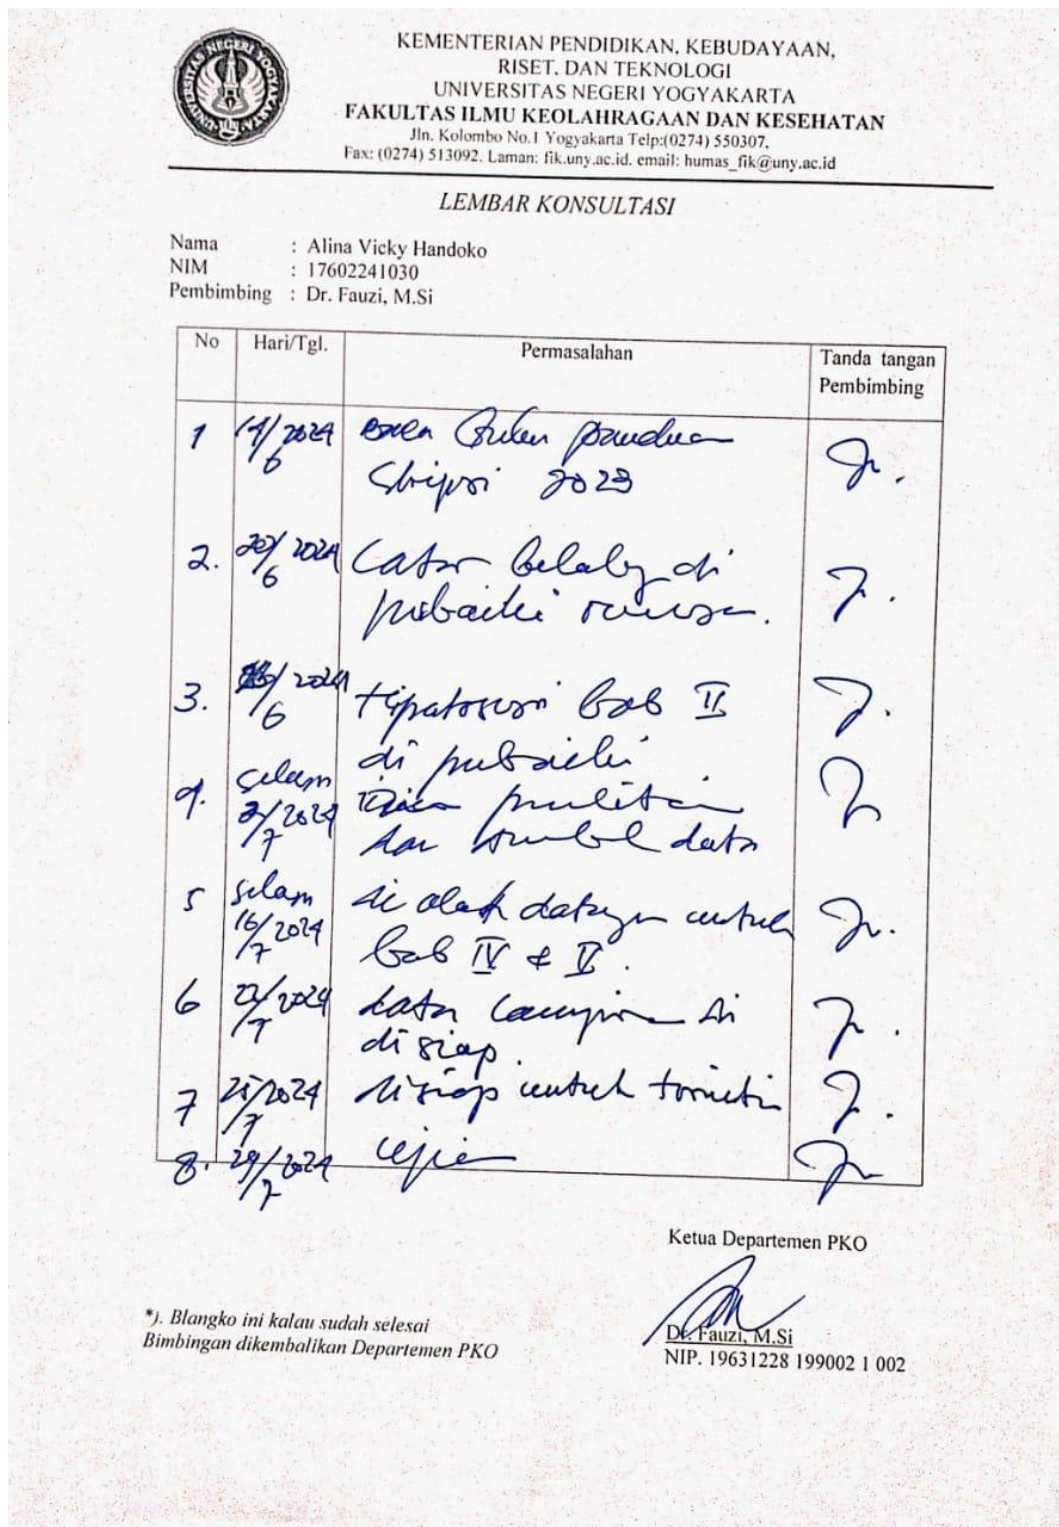 UNIVERSITAS NEGERI YOGYAKARTA
KEMENTERIAN PENDIDIKAN, KEBUDAYAAN,
RISET. DAN TEKNOLOGI
UNIVERSITAS NEGERI YOGYAKARTA
FAKULTAS ILMU KEOLAHRAGAAN DAN KESEHATAN
Jln. Kolombo No.1 Yogyakarta Telp:(0274) 550307,
Fax: (0274) 513092. Laman: fik.uny.ac.id. email: humas_fik@uny.ac.id
LEMBAR KONSULTASI
Nama : Alina Vicky Handoko
NIM : 17602241030
Pembimbing : Dr. Fauzi, M.Si
No Hari/Tgl. Permasalahan Tanda tangan
Pembimbing
1 14/6 2024 Buku panduan
Skripsi 2023
2. 20/6 2024 Latar belakang di
perbaiki
3. /6 2024 bab II
di perbaiki
4. selasa
2/7 2024 data
5 selasa di olah datanya untuk
16/7 2024 bab IV & V.
6 22/7 2024 data
di siap.
7 25/7 2024 disiap untuk
8. 29/7 2024 ujian
Ketua Departemen PKO
*). Blangko ini kalau sudah selesai
Bimbingan dikembalikan Departemen PKO
Dr. Fauzi, M.Si
NIP. 19631228 199002 1 002